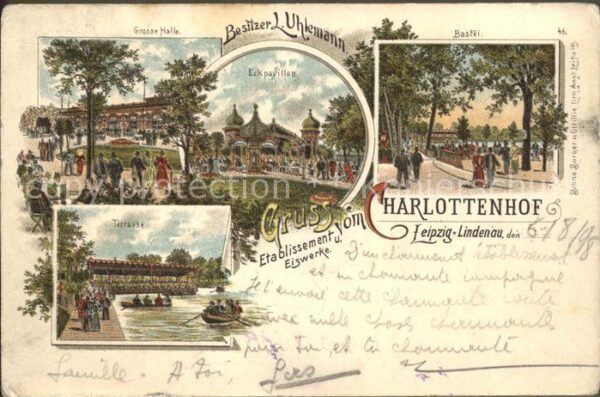 Besitzer L. Uhlemann.
Grosse Halle.
Eckpavillon.
Bastei.
46.
Terrasse.
Gruss vom Charlottenhof
Etablissement u. Eiswerke.
Leipzig-Lindenau, den 6/8/98
D'un charmant établissement
et en charmante compagnie
Je t'envoie cette charmante carte
avec mille choses charmantes
pour toi, et ta charmante
famille. A toi,